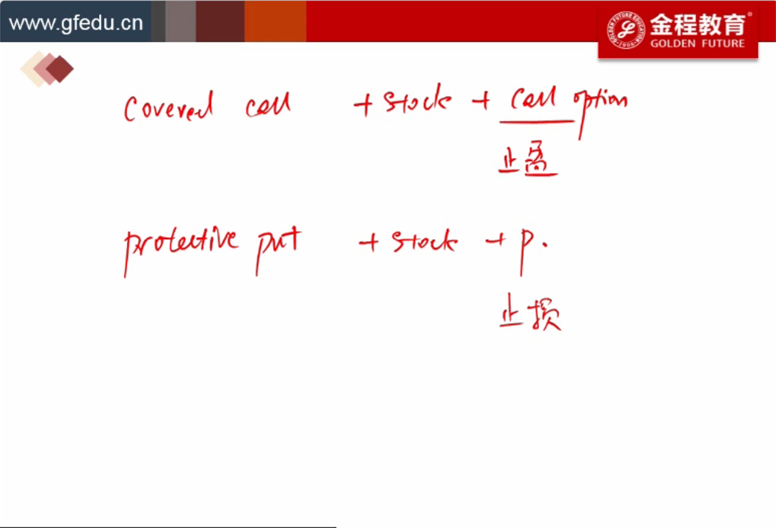 www.gfedu.cn
金程教育
GOLDEN FUTURE
covered call +stock + call option
止盈
protective put +stock + p.
止损